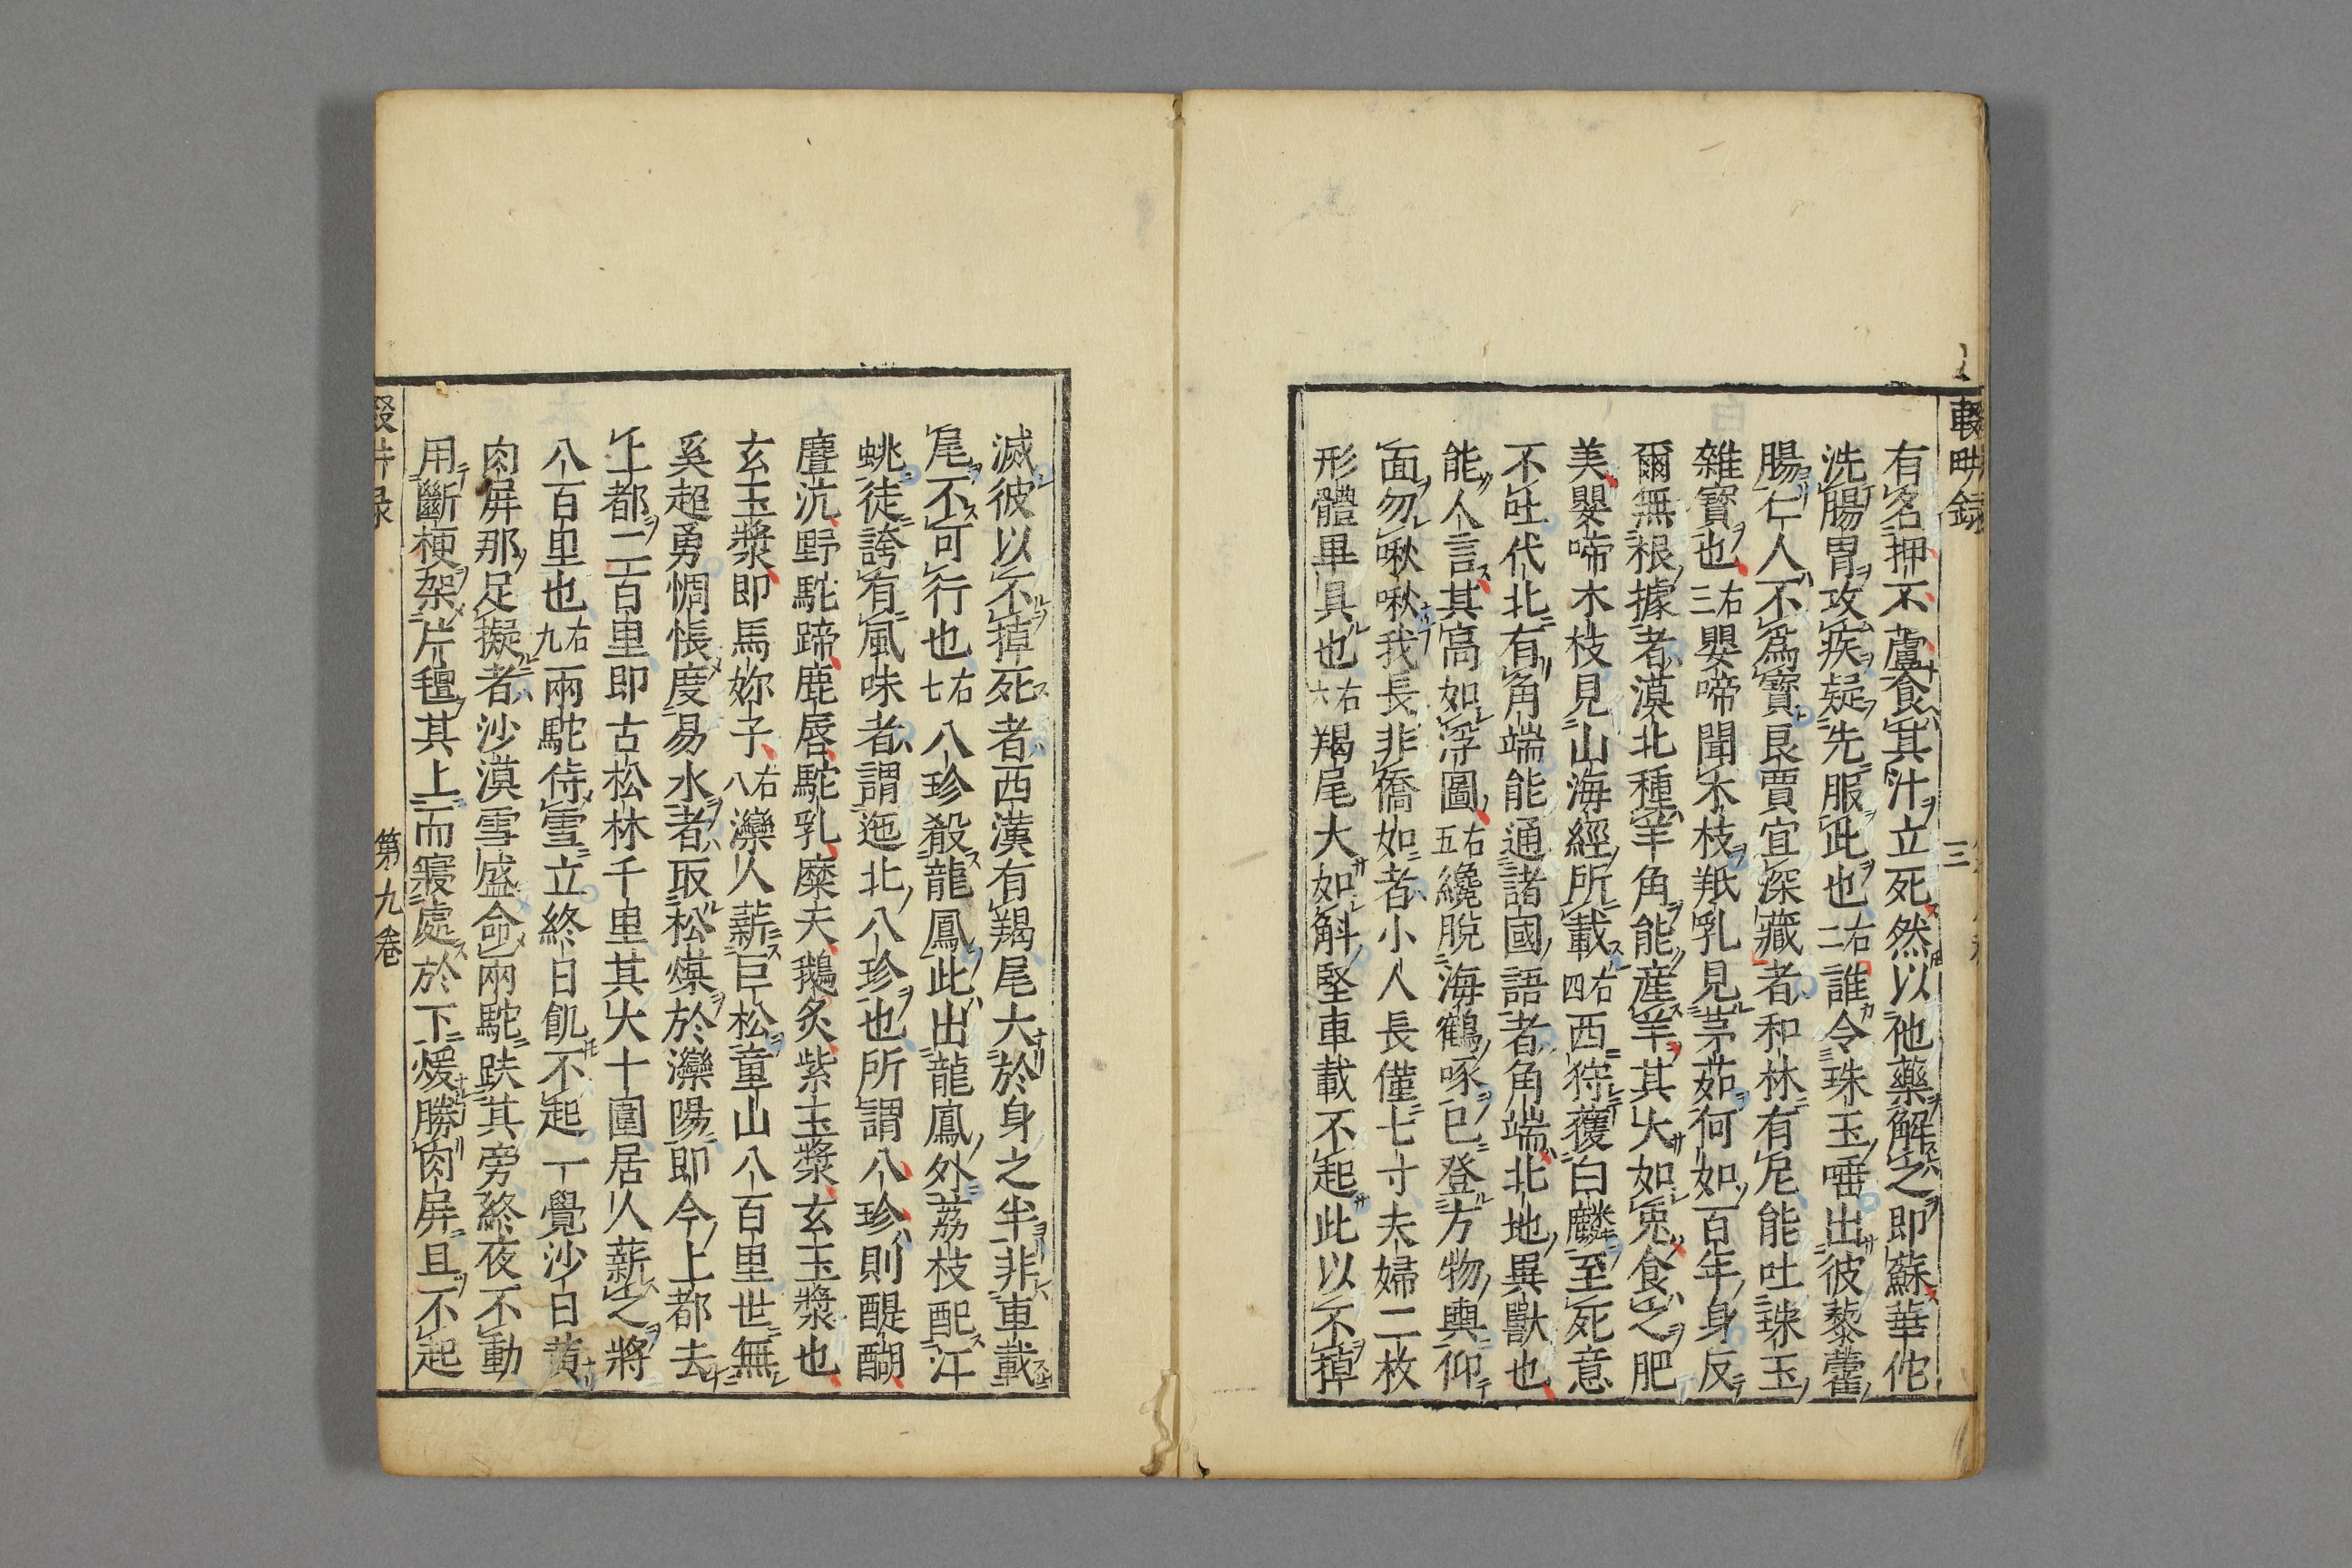 輟畊録
三
有名押不蘆食其汁立死然以他藥解之即蘇華佗
洗腸胃攻疾疑先服此也右二誰令珠玉唾出彼藜藿
腸仁人不爲寶良賈宜深藏者和林有尼能吐珠玉
雜寶也右三嬰啼聞木枝羝乳見茅茹何如百年身反
爾無根據者漠北種羊角能産羊其大如兎食之肥
美嬰啼木枝見山海經所載右四西狩獲白麟至死意
不吐代北有角端能通諸國語者角端北地異獸也
能人言其高如浮圖右五纔脫海鶴啄已登方物輿仰
面勿啾啾我長非僑如者小人長僅七寸夫婦二枚
形體畢具也右六羯尾大如斛堅車載不起此以不掉
滅彼以不掉死者西漢有羯尾大於身之半非車載
尾不可行也右七八珍殽龍鳳此出龍鳳外荔枝配江
蛾徒誇有風味者謂迤北八珍也所謂八珍則醍醐
麆沆野駝蹄鹿唇駝乳糜天鵝炙紫玉漿玄玉漿也
玄玉漿即馬妳子右八灤人薪巨松童山八百里世無
奚超勇惆悵度易水者取松煤於灤陽即今上都去
上都二百里即古松林千里其大十圍居人薪之將
八百里也右九兩駝侍雪立終日飢不起一覺沙日黄
肉屏那足擬者沙漠雪盛命兩駝趺其旁終夜不動
用斷梗架片氊其上而寢處於下煖勝肉屏且不起
第九卷